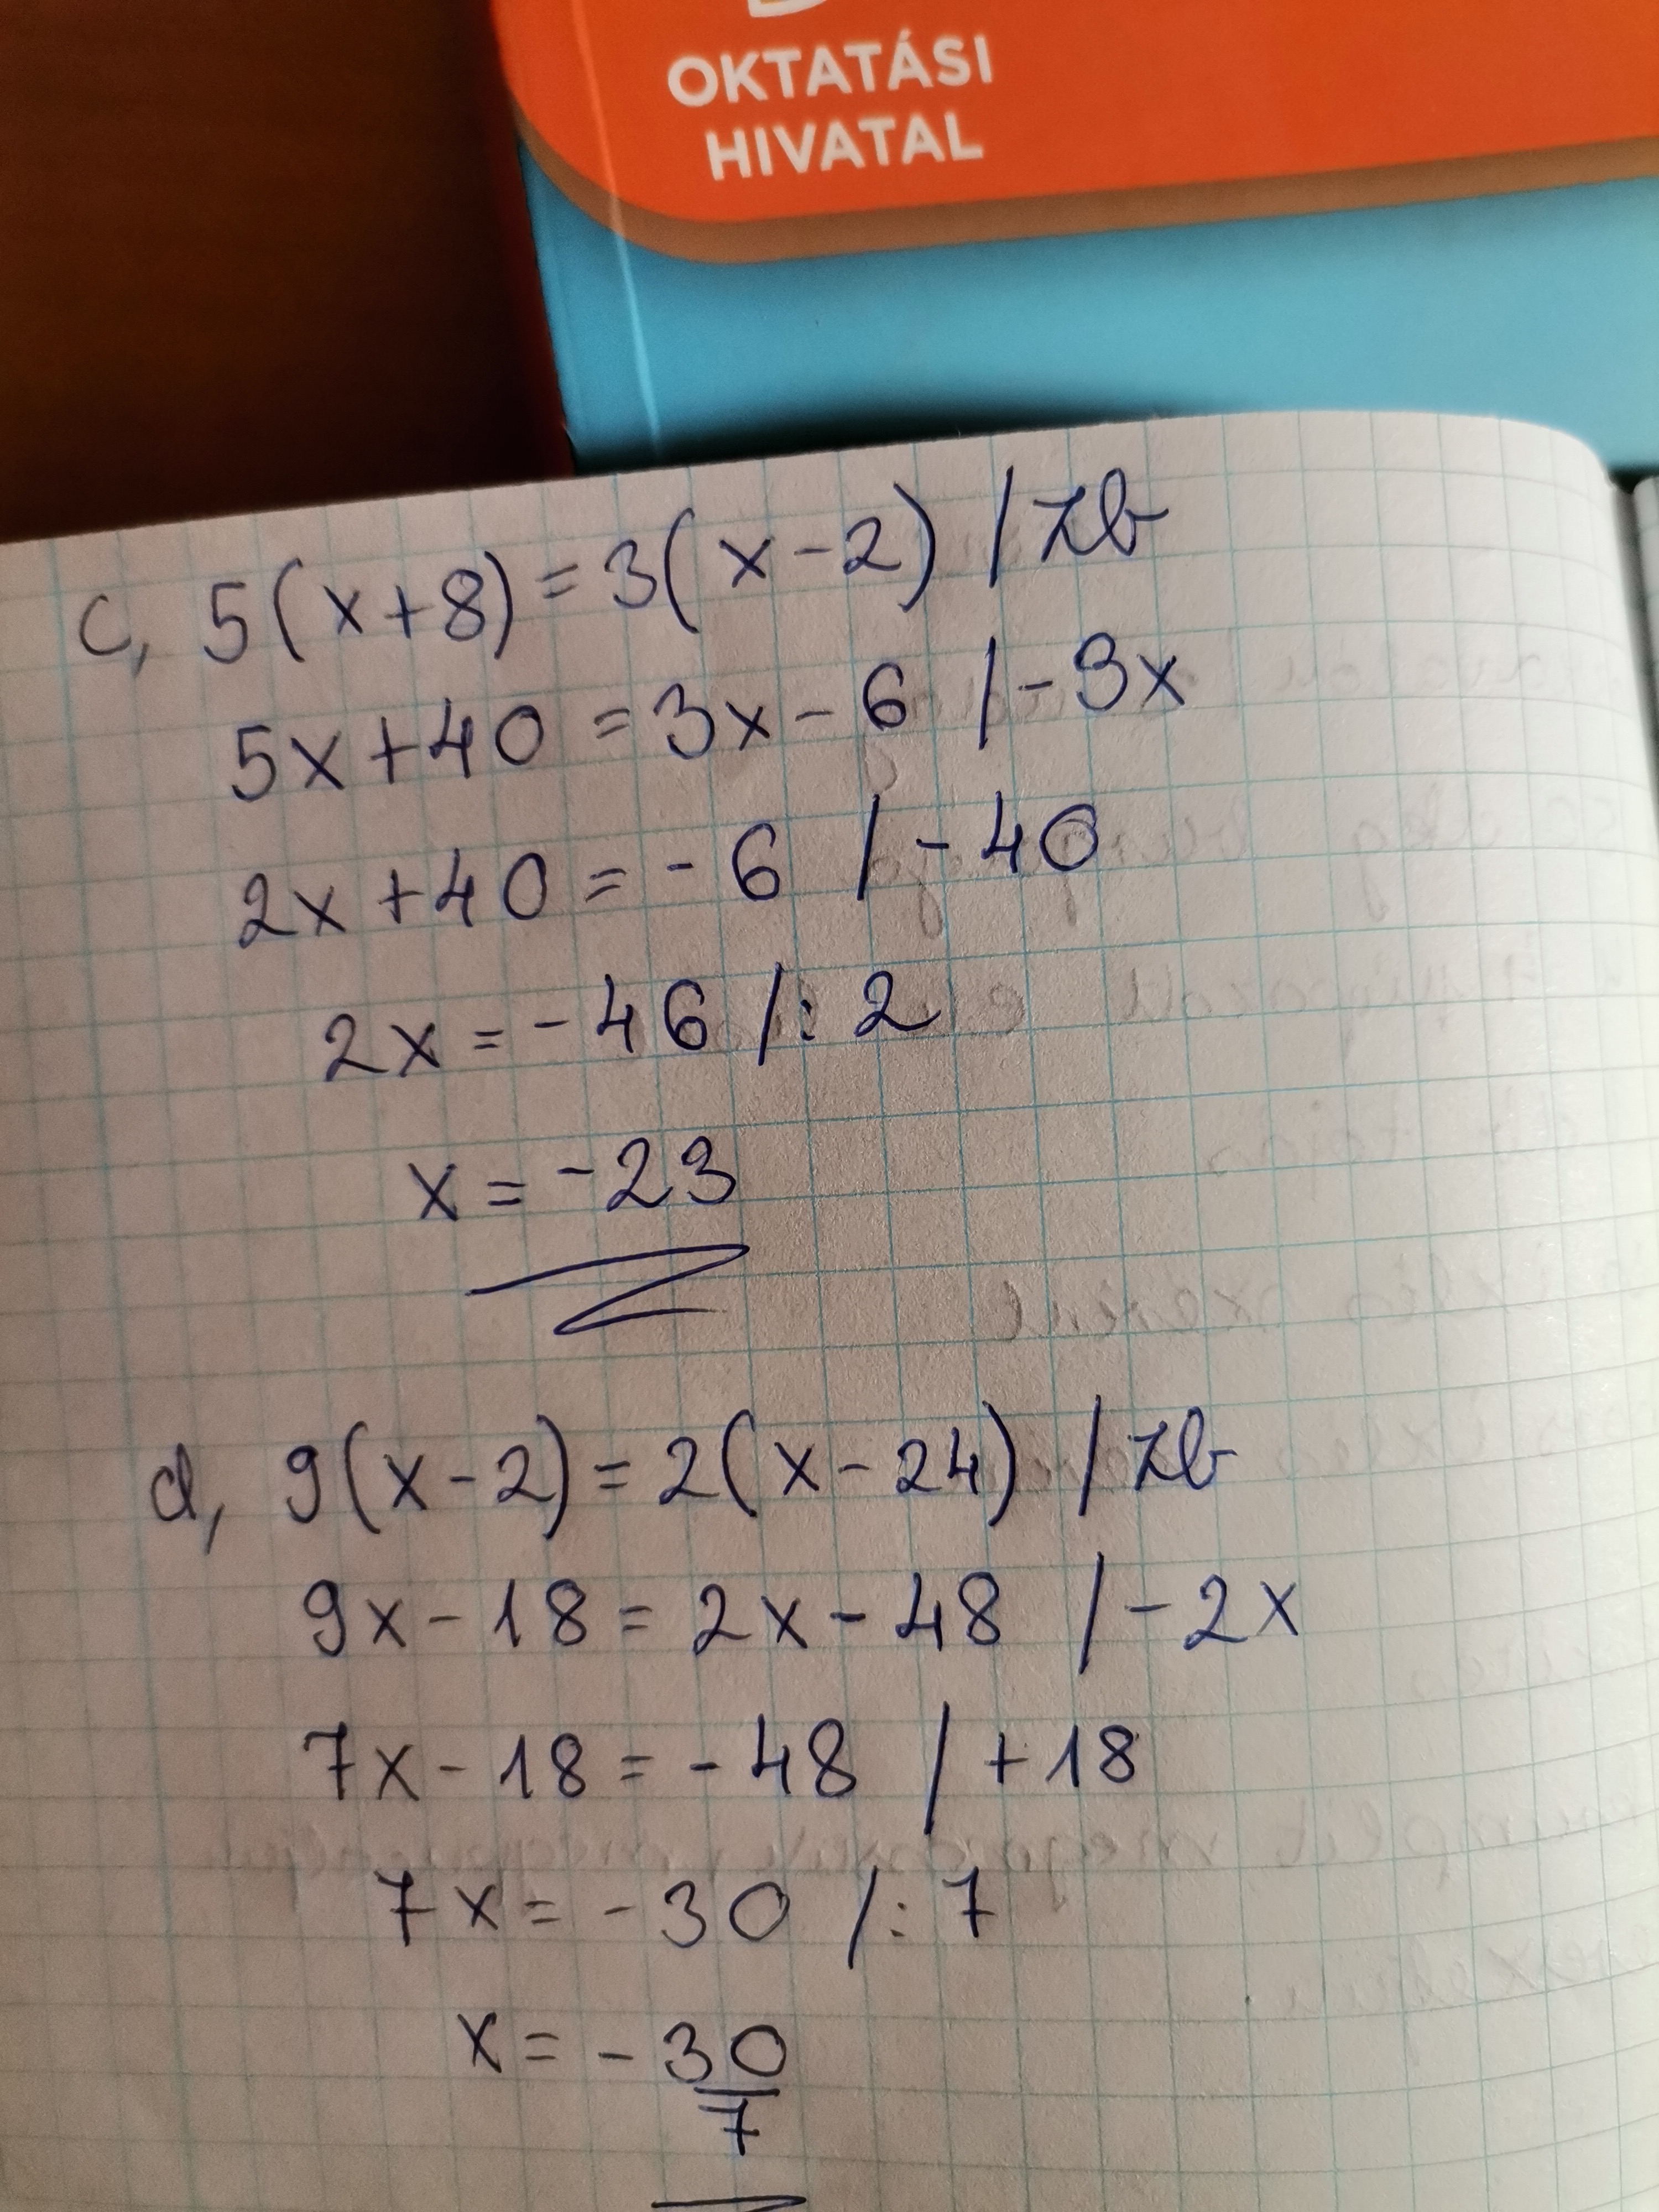 OKTATÁSI
HIVATAL
c, 5(x+8)=3(x-2) /zb
5x+40=3x-6 /-3x
2x+40=-6 /-40
2x=-46 /:2
x=-23
d, 9(x-2)=2(x-24) /zb
9x-18=2x-48 /-2x
7x-18=-48 /+18
7x=-30 /:7
x=-30
7